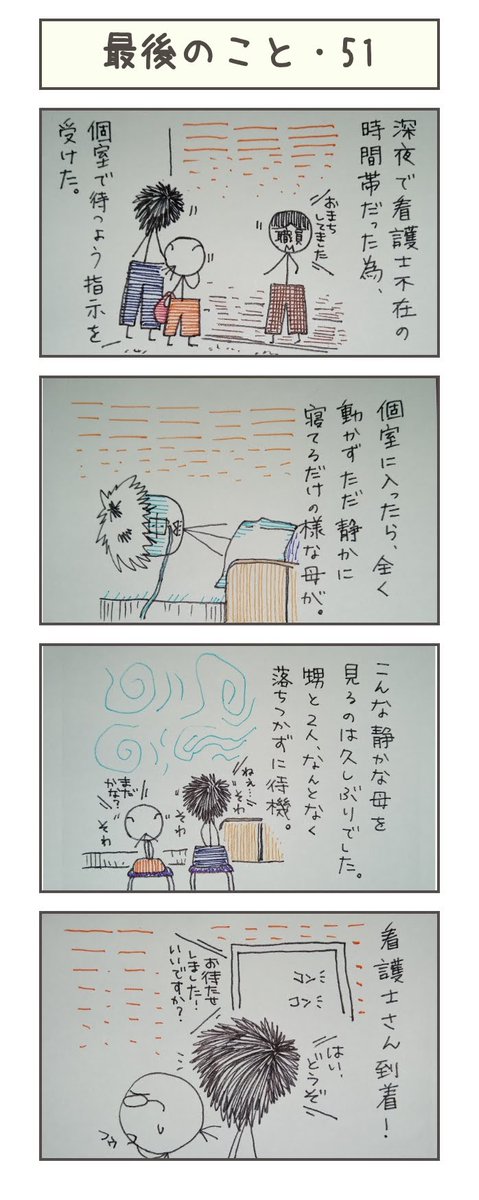 最後のこと・51
深夜で看護士不在の
時間帯だった為、
おまち
してました
職員
個室で待つよう指示を
受けた。
個室に入ったら、全く
動かずただ静かに
寝てるだけの様な母が。
こんな静かな母を
見るのは久しぶりでした。
甥と2人、なんとなく
落ちつかずに待機。
ねぇ…
そわ
そわ
まだ
かな?
そわ
看護士さん到着!
コンコン
お待たせ
しました!
いいですか?
はい、
どうぞ
フゥ